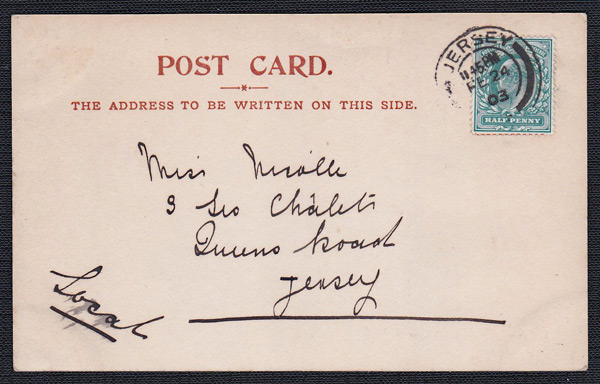 POST CARD.
THE ADDRESS TO BE WRITTEN ON THIS SIDE.
JERSEY
11.45PM
FE 24
03
HALF PENNY
Miss Nicolle
3 Châlet
Queens Road
Jersey
Local